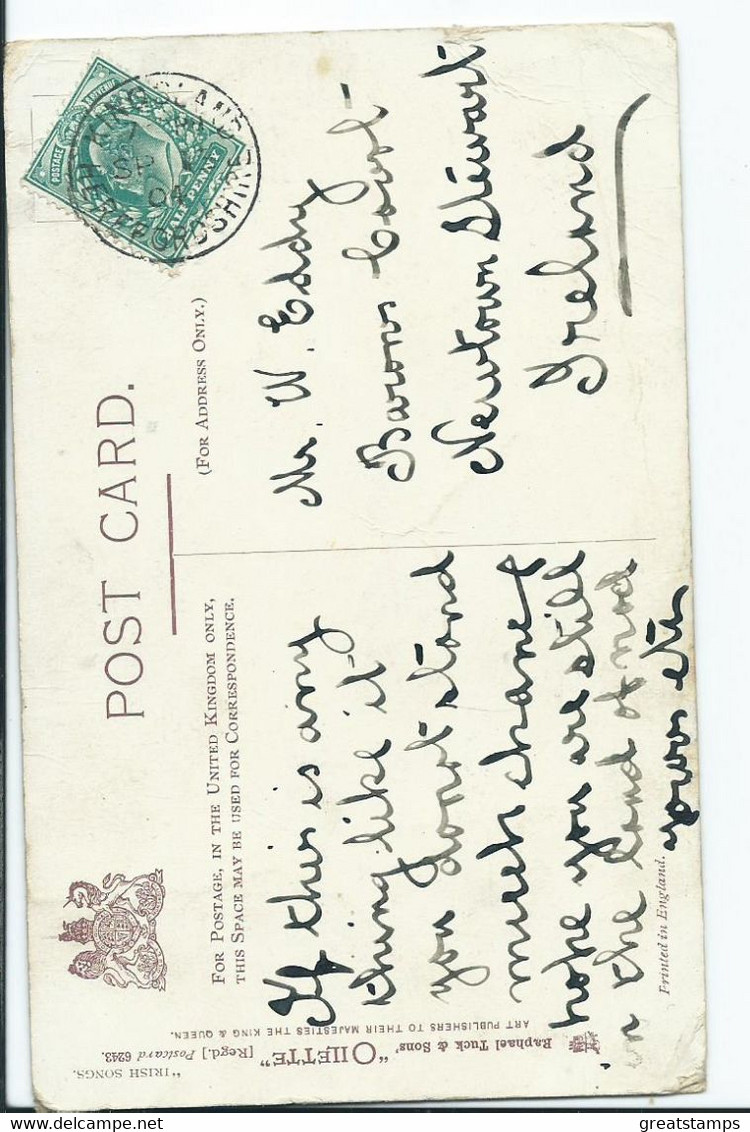 POST CARD.
FOR POSTAGE, IN THE UNITED KINGDOM ONLY,
THIS SPACE MAY BE USED FOR CORRESPONDENCE.
(FOR ADDRESS ONLY.)
If this is any
thing like it
you donot stand
much chance
hope you are still
in the land of nod
yours etc
Mr. W. Eddy
Barons Court
Newtown Stewart
Ireland
KINGSLAND
SP
04
HEREFORDSHIRE
POSTAGE
HALF PENNY
"IRISH SONGS.
Raphael Tuck & Sons' "OILETTE" [Regd.] Postcard 6243.
ART PUBLISHERS TO THEIR MAJESTIES THE KING & QUEEN.
Printed in England.
greatstamps